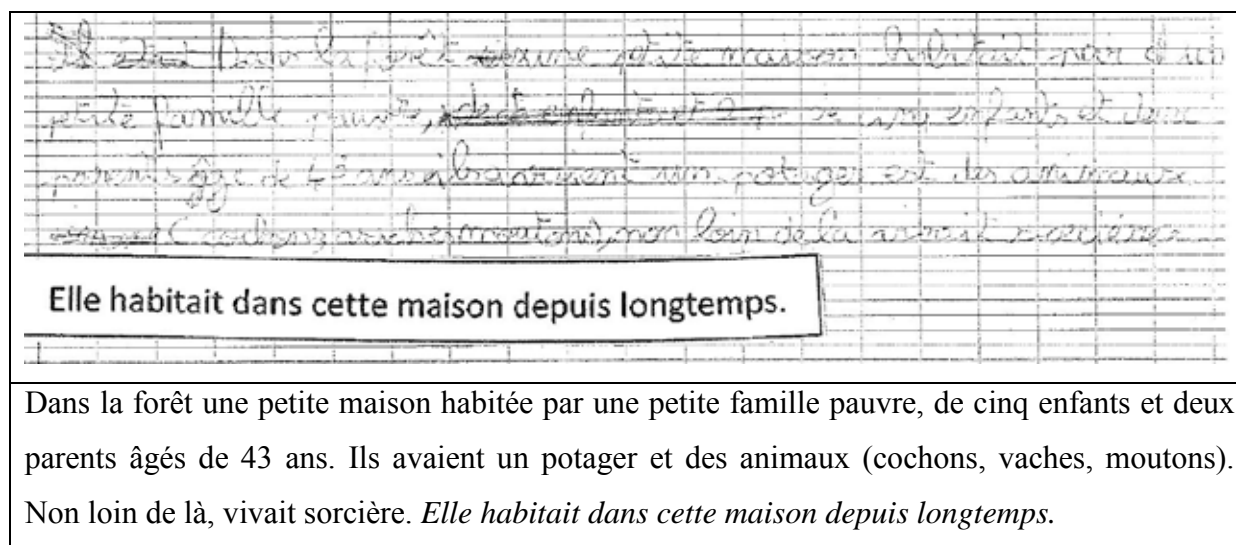 Dans la forêt une petite maison habitait par
petite famille pauvre, cinq enfants et deux
parents âge de 43 ans un potager est des animaux
(moutons), non loin de la vivait
Elle habitait dans cette maison depuis longtemps.
Dans la forêt une petite maison habitée par une petite famille pauvre, de cinq enfants et deux
parents âgés de 43 ans. Ils avaient un potager et des animaux (cochons, vaches, moutons).
Non loin de là, vivait sorcière. Elle habitait dans cette maison depuis longtemps.